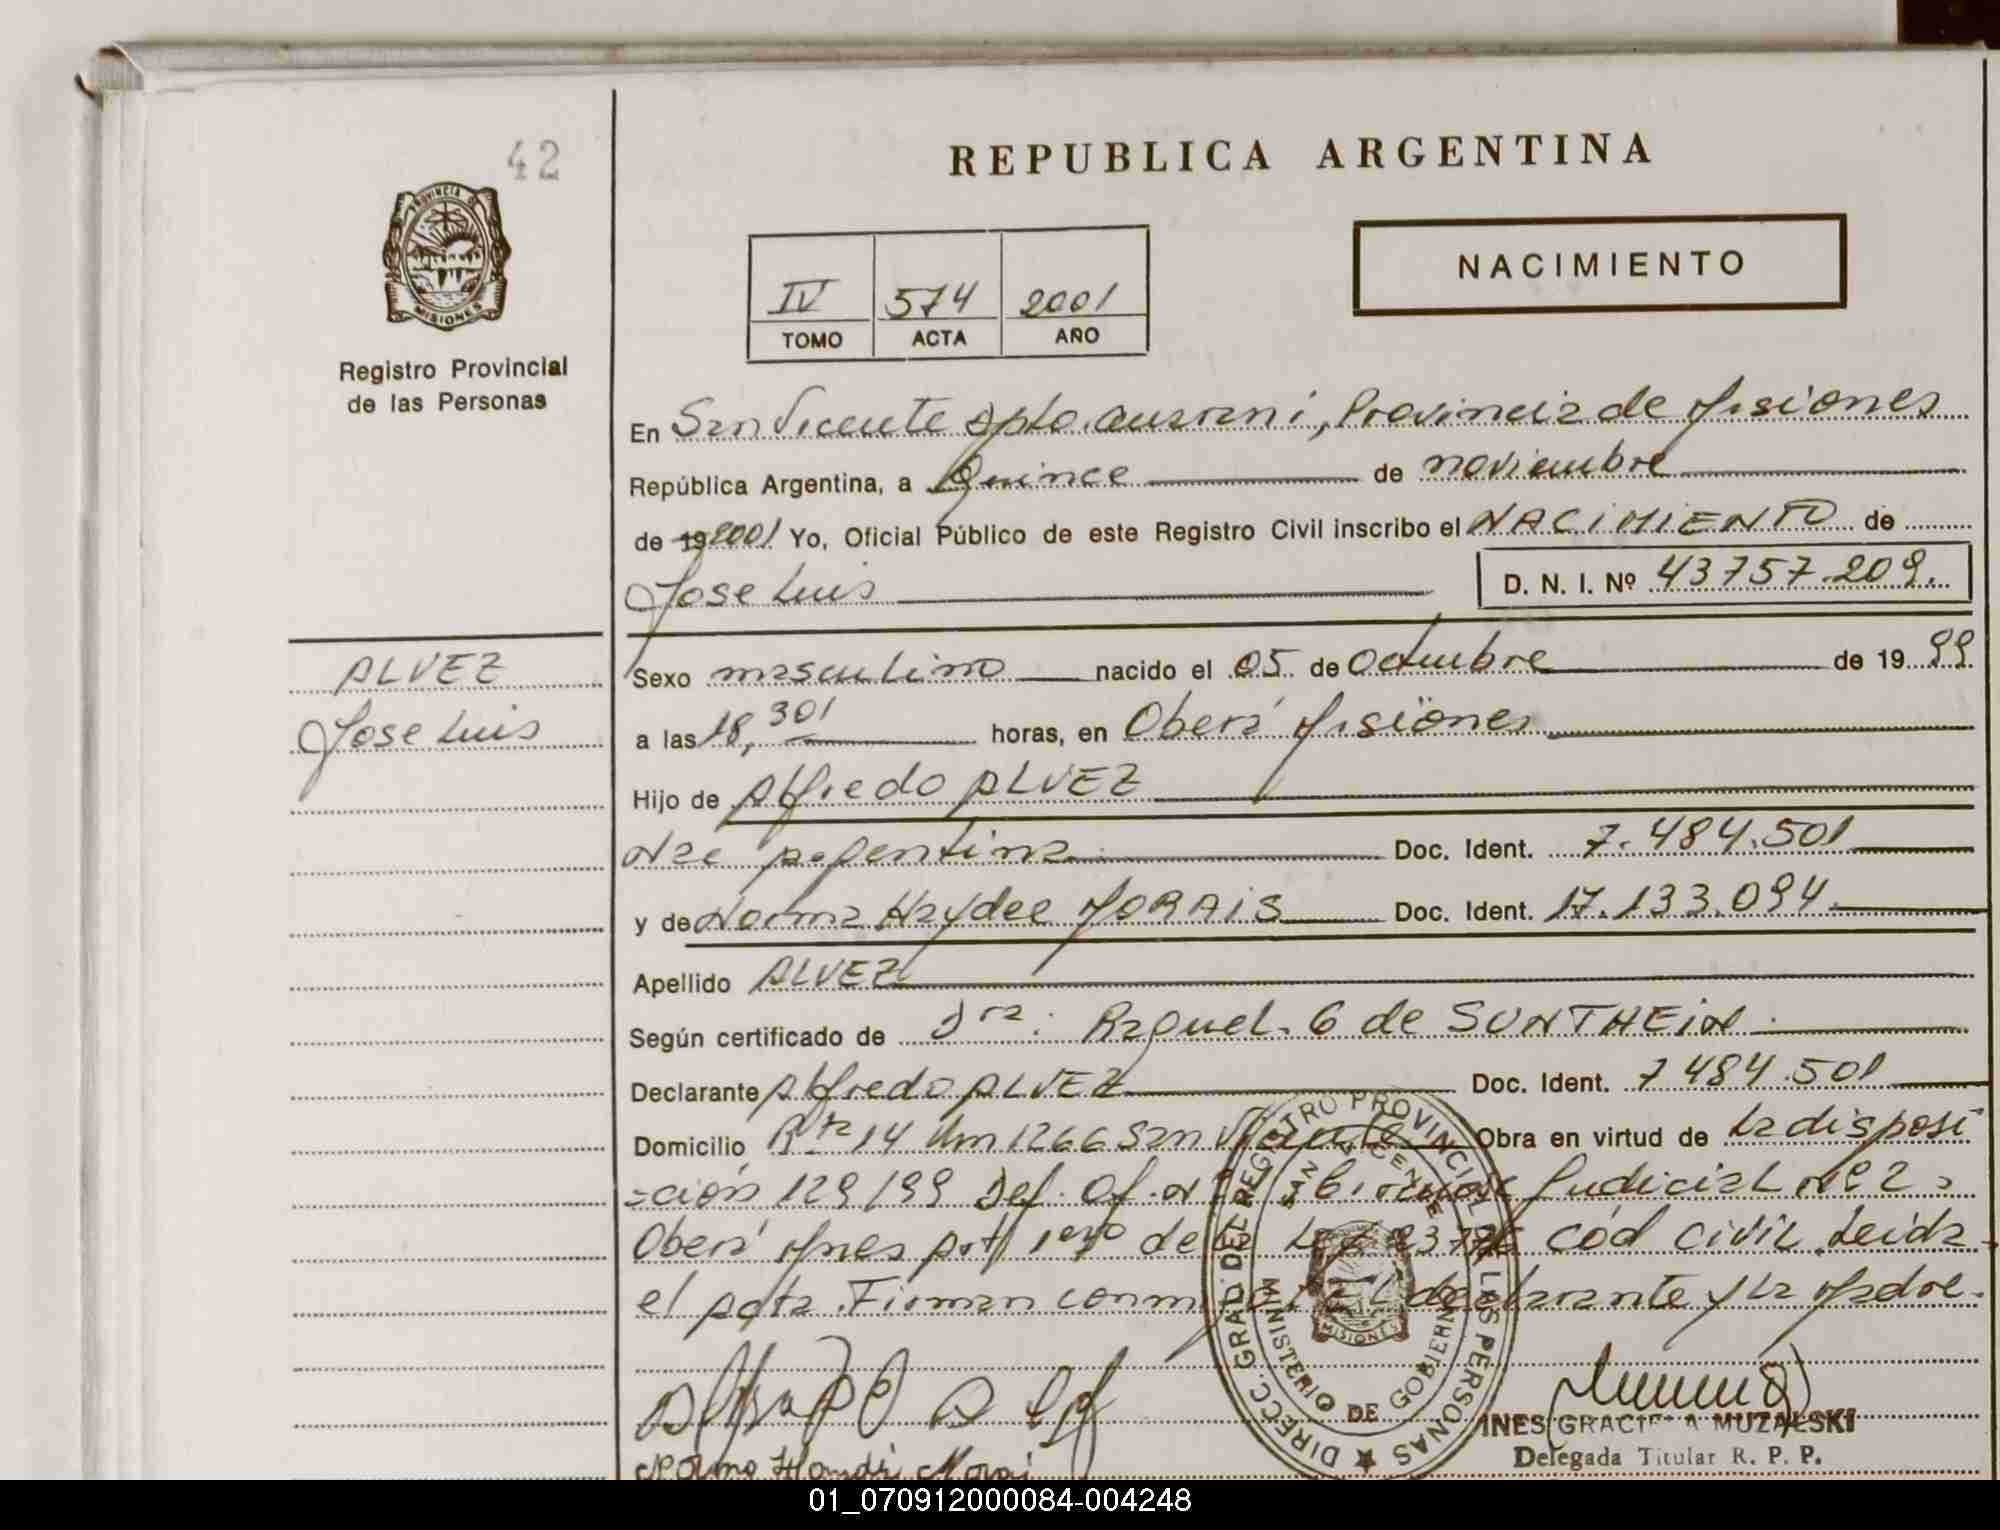 42
REPUBLICA ARGENTINA
PROVINCIA DE
MISIONES
NACIMIENTO
IV 574 2001
TOMO ACTA AÑO
Registro Provincial
de las Personas
En San Vicente Dpto. Guarani, Provincia de Misiones
República Argentina, a Quince de noviembre
de 19 2001 Yo, Oficial Público de este Registro Civil inscribo el NACIMIENTO de
Jose Luis D. N. I. Nº 43757.209.
ALVEZ
Jose Luis
Sexo masculino nacido el 05 de Octubre de 19 99
a las 18,30 horas, en Oberá Misiones
Hijo de Alfredo ALVEZ
Nac Argentina Doc. Ident. 7.484.501
y de Norma Haydee MORAIS Doc. Ident. 17.133.094
Apellido ALVEZ
Según certificado de Dra: Raquel. G de SUNTHEIN
Declarante Alfredo ALVEZ Doc. Ident. 7 484.501
Domicilio Rta 14 Km 1266 San Vicente Obra en virtud de La disposi
=ción 129/99 Def. Of. Judicial Nº 2,
Oberá Mnes Art 1ero de la Ley 23776 Cód Civil. Leida
el Acta. Firman conmigo El declarante y La Madre.
DIREC. GRAL. DEL REGISTRO PROVINCIAL DE LAS PERSONAS
SAN VICENTE
MINISTERIO DE GOBIERNO
MISIONES
INES GRACIELA MUZALSKI
Delegada Titular R. P. P.
01_070912000084-004248